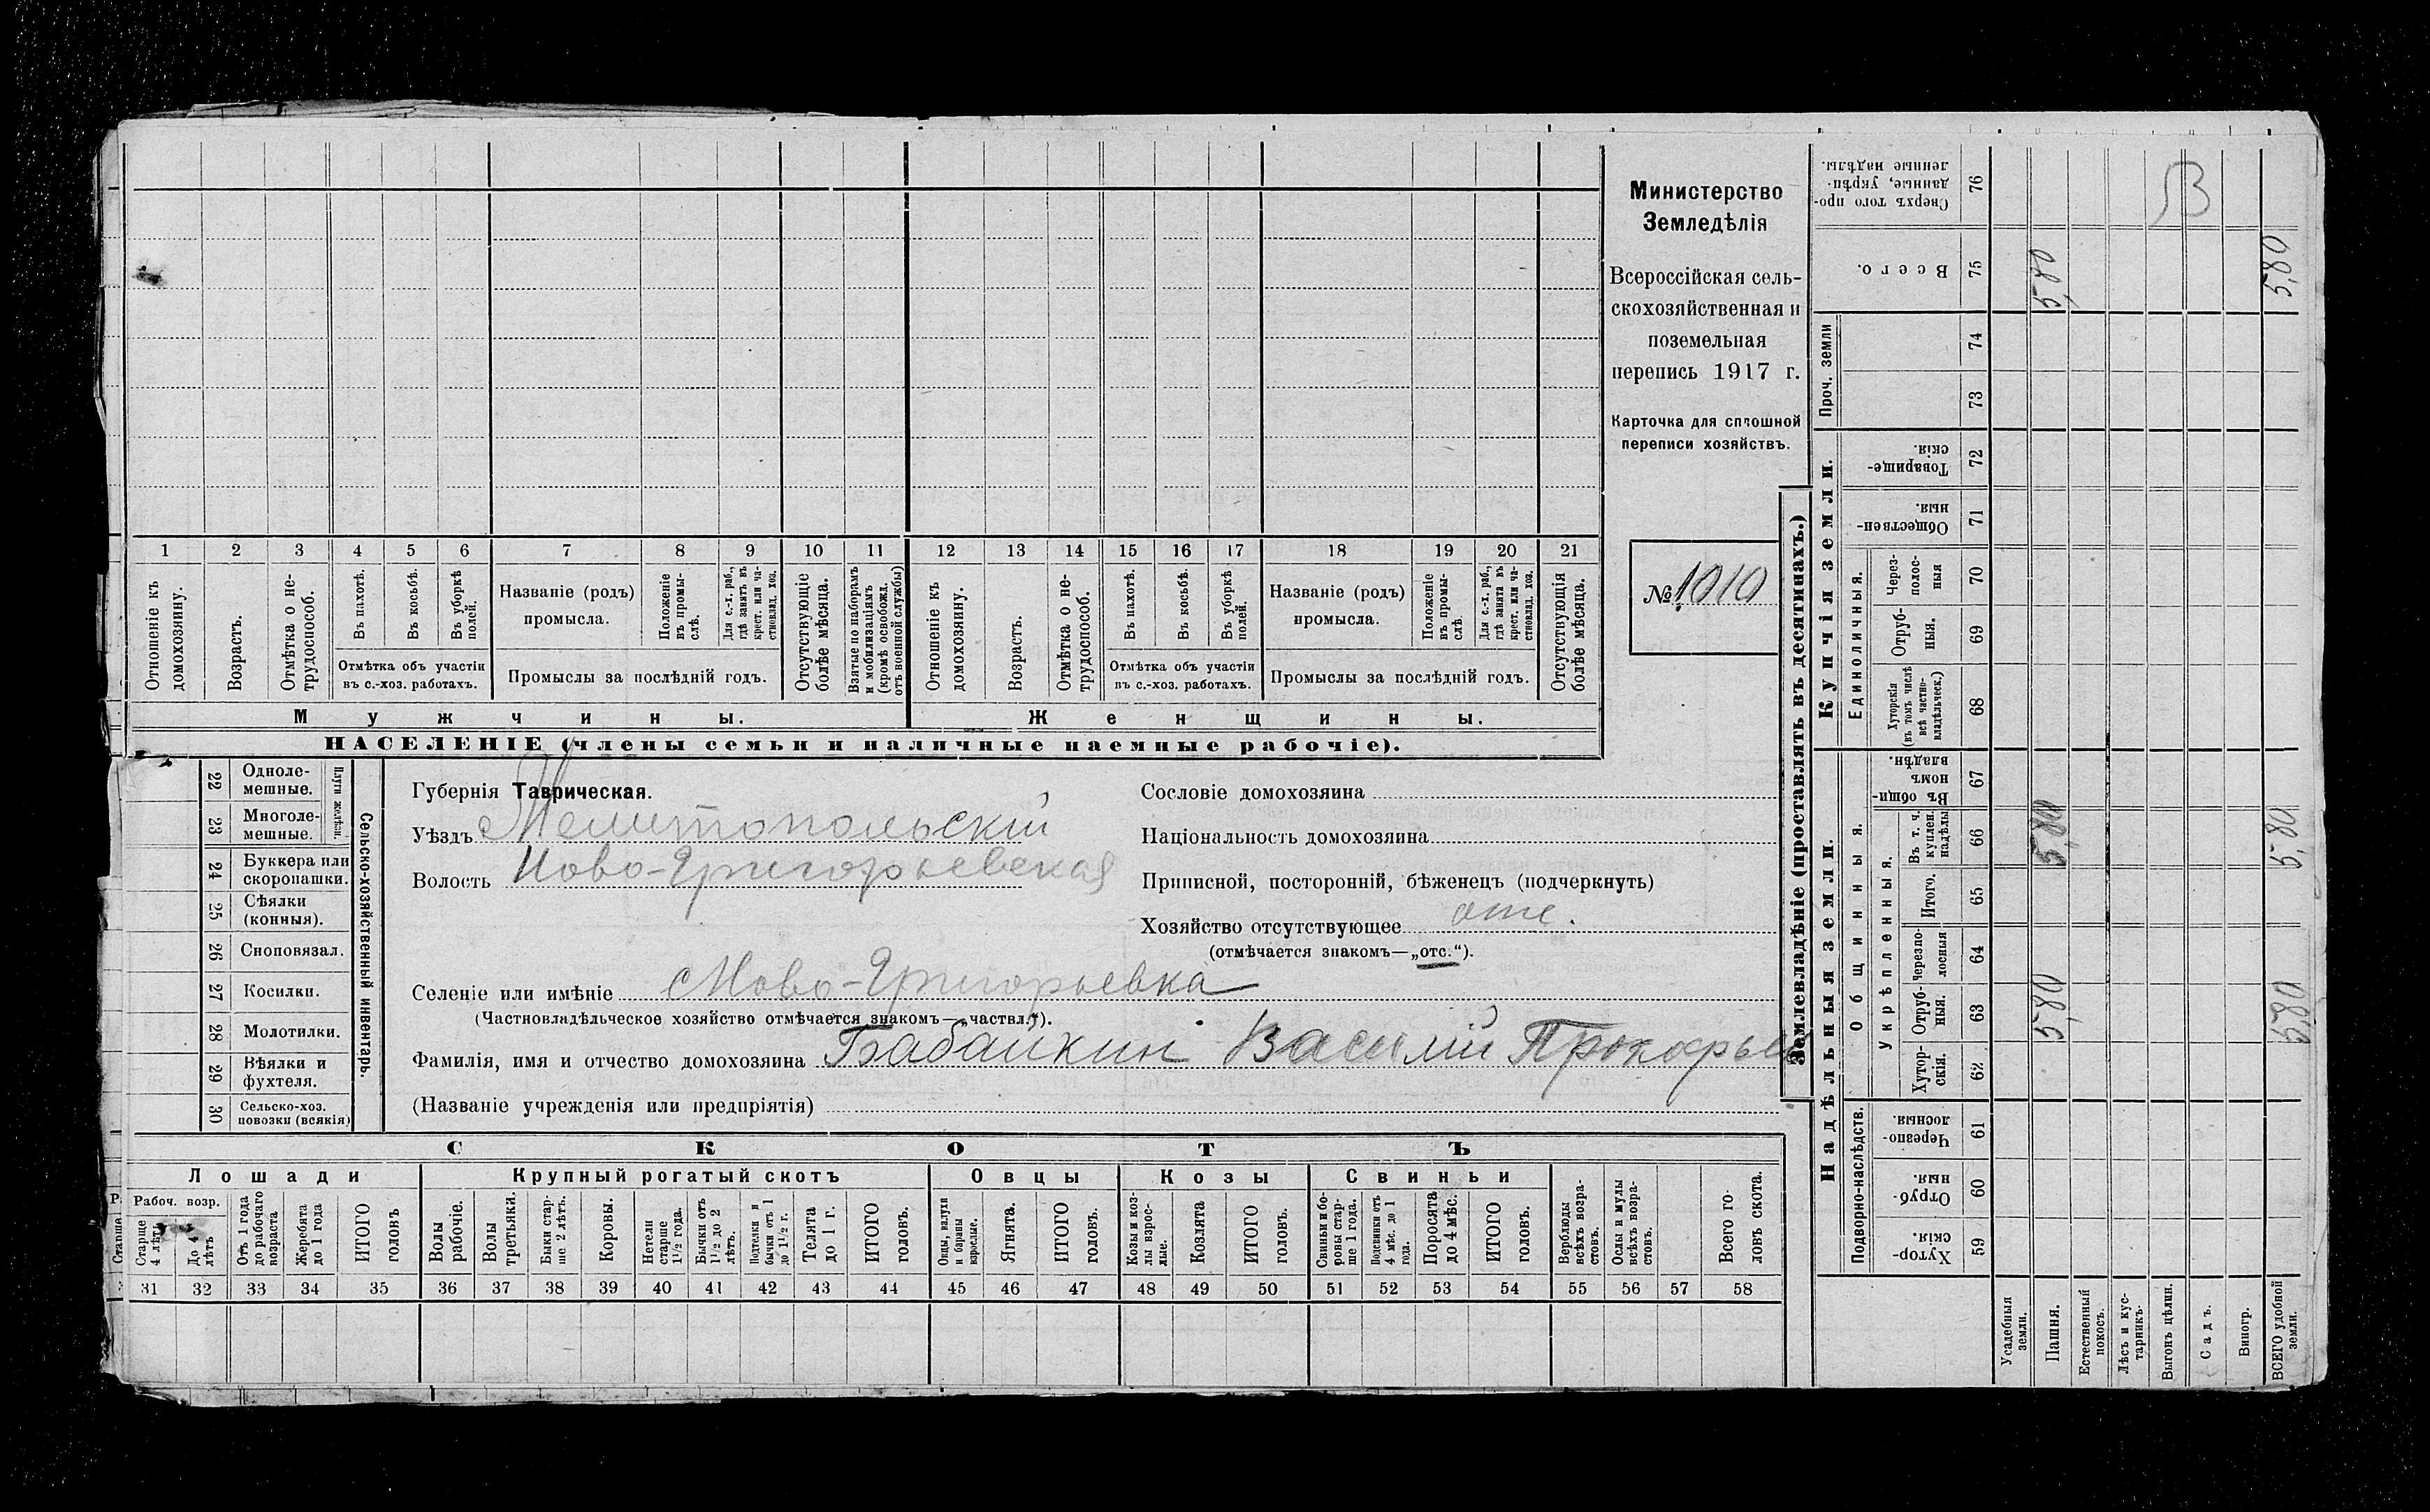 Министерство
Земледѣлія
Всероссійская сель-
скохозяйственная и
поземельная
перепись 1917 г.
Карточка для сплошной
переписи хозяйствъ.
№ 1010
1 2 3 4 5 6 7 8 9 10 11 12 13 14 15 16 17 18 19 20 21
Отношеніе къ домохозяину.
Возрастъ.
Отмѣтка о не-трудоспособ.
Въ пахотѣ.
Въ косьбѣ.
Въ уборкѣ полей.
Отмѣтка объ участіи
въ с.-хоз. работахъ.
Названіе (родъ)
промысла.
Положеніе въ промы-слѣ.
Для с.-х. раб., гдѣ занятъ въ крест. или ча-стновлад. хоз.
Промыслы за послѣдній годъ.
Отсутствующіе болѣе мѣсяца.
Взятые по наборамъ и мобилизаціямъ (кромѣ освобожд. отъ военной службы)
Отношеніе къ домохозяину.
Возрастъ.
Отмѣтка о не-трудоспособ.
Въ пахотѣ.
Въ косьбѣ.
Въ уборкѣ полей.
Отмѣтка объ участіи
въ с.-хоз. работахъ.
Названіе (родъ)
промысла.
Положеніе въ промы-слѣ.
Для с.-х. раб., гдѣ занята въ крест. или ча-стновлад. хоз.
Промыслы за послѣдній годъ.
Отсутствующія болѣе мѣсяца.
Мужчины.
Женщины.
НАСЕЛЕНІЕ (члены семьи и наличные наемные рабочіе).
Сельско-хозяйственный инвентарь.
Плуги желѣзн.
22 Одноле-мешные.
23 Многоле-мешные.
24 Буккера или скоропашки.
25 Сѣялки (конныя).
26 Сноповязал.
27 Косилки.
28 Молотилки.
29 Вѣялки и фухтеля.
30 Сельско-хоз. повозки (всякія)
Губернія Таврическая.
Уѣздъ Мелитопольскій
Волость Ново-Григорьевская
Сословіе домохозяина
Національность домохозяина
Приписной, посторонній, бѣженецъ (подчеркнуть)
Хозяйство отсутствующее отс.
(отмѣчается знакомъ—„отс.“).
Селеніе или имѣніе Ново-Григорьевка
(Частновладѣльческое хозяйство отмѣчается знакомъ—„частвл.“).
Фамилія, имя и отчество домохозяина Бабайкин Василій Прокофьев
(Названіе учрежденія или предпріятія)
СКОТЪ
Лошади
Крупный рогатый скотъ
Овцы
Козы
Свиньи
Рабоч. возр.
Старше 4 лѣтъ
До 4 лѣтъ
Отъ 1 года до рабочаго возраста
Жеребята до 1 года
ИТОГО головъ
Волы рабочіе.
Волы третьяки.
Быки стар-ше 2 лѣтъ.
Коровы.
Нетели старше 1½ года.
Бычки отъ 1½ до 2 лѣтъ.
Подтелки и бычки отъ 1 до 1½ г.
Телята до 1 г.
ИТОГО головъ.
Овцы, валухи и бараны взрослые.
Ягнята.
ИТОГО головъ.
Козы и коз-лы взрос-лые.
Козлята
ИТОГО головъ.
Свиньи и бо-ровы стар-ше 1 года.
Подсвинки отъ 4 мѣс. до 1 года.
Поросята до 4 мѣс.
ИТОГО головъ.
Верблюды всѣхъ возра-стовъ.
Ослы и мулы всѣхъ возра-стовъ.
Всего го-ловъ скота.
31 32 33 34 35 36 37 38 39 40 41 42 43 44 45 46 47 48 49 50 51 52 53 54 55 56 57 58
Землевладѣніе (проставлять въ десятинахъ.)
Надѣльныя земли.
Подворно-наслѣдств.
Хутор-скія. 59
Отруб-ныя. 60
Черезпо-лосныя. 61
Общинныя.
Укрѣпленныя.
Хутор-скія. 62
Отруб-ныя. 63 5,80 5,80
Черезпо-лосныя 64
Итого. 65
Въ т. ч. куплен. надѣлы 66 5,80 5,80
Въ общи-номъ владѣн. 67
Купчія земли.
Единоличныя.
Хуторскія (въ томъ числѣ всѣ частно-владѣльческ.) 68
Отруб-ныя. 69
Через-полос-ныя 70
Обществен-ныя. 71
Товарище-скія 72
Проч. земли
73
74
Всего. 75 5,80 5,80
Сверхъ того про-данные, укрѣп-ленные надѣлы. 76
В
Усадебныя земли.
Пашня.
Естественный покосъ.
Лѣсъ и кус-тарникъ.
Выгонъ цѣлин.
Садъ.
Виногр.
ВСЕГО удобной земли.